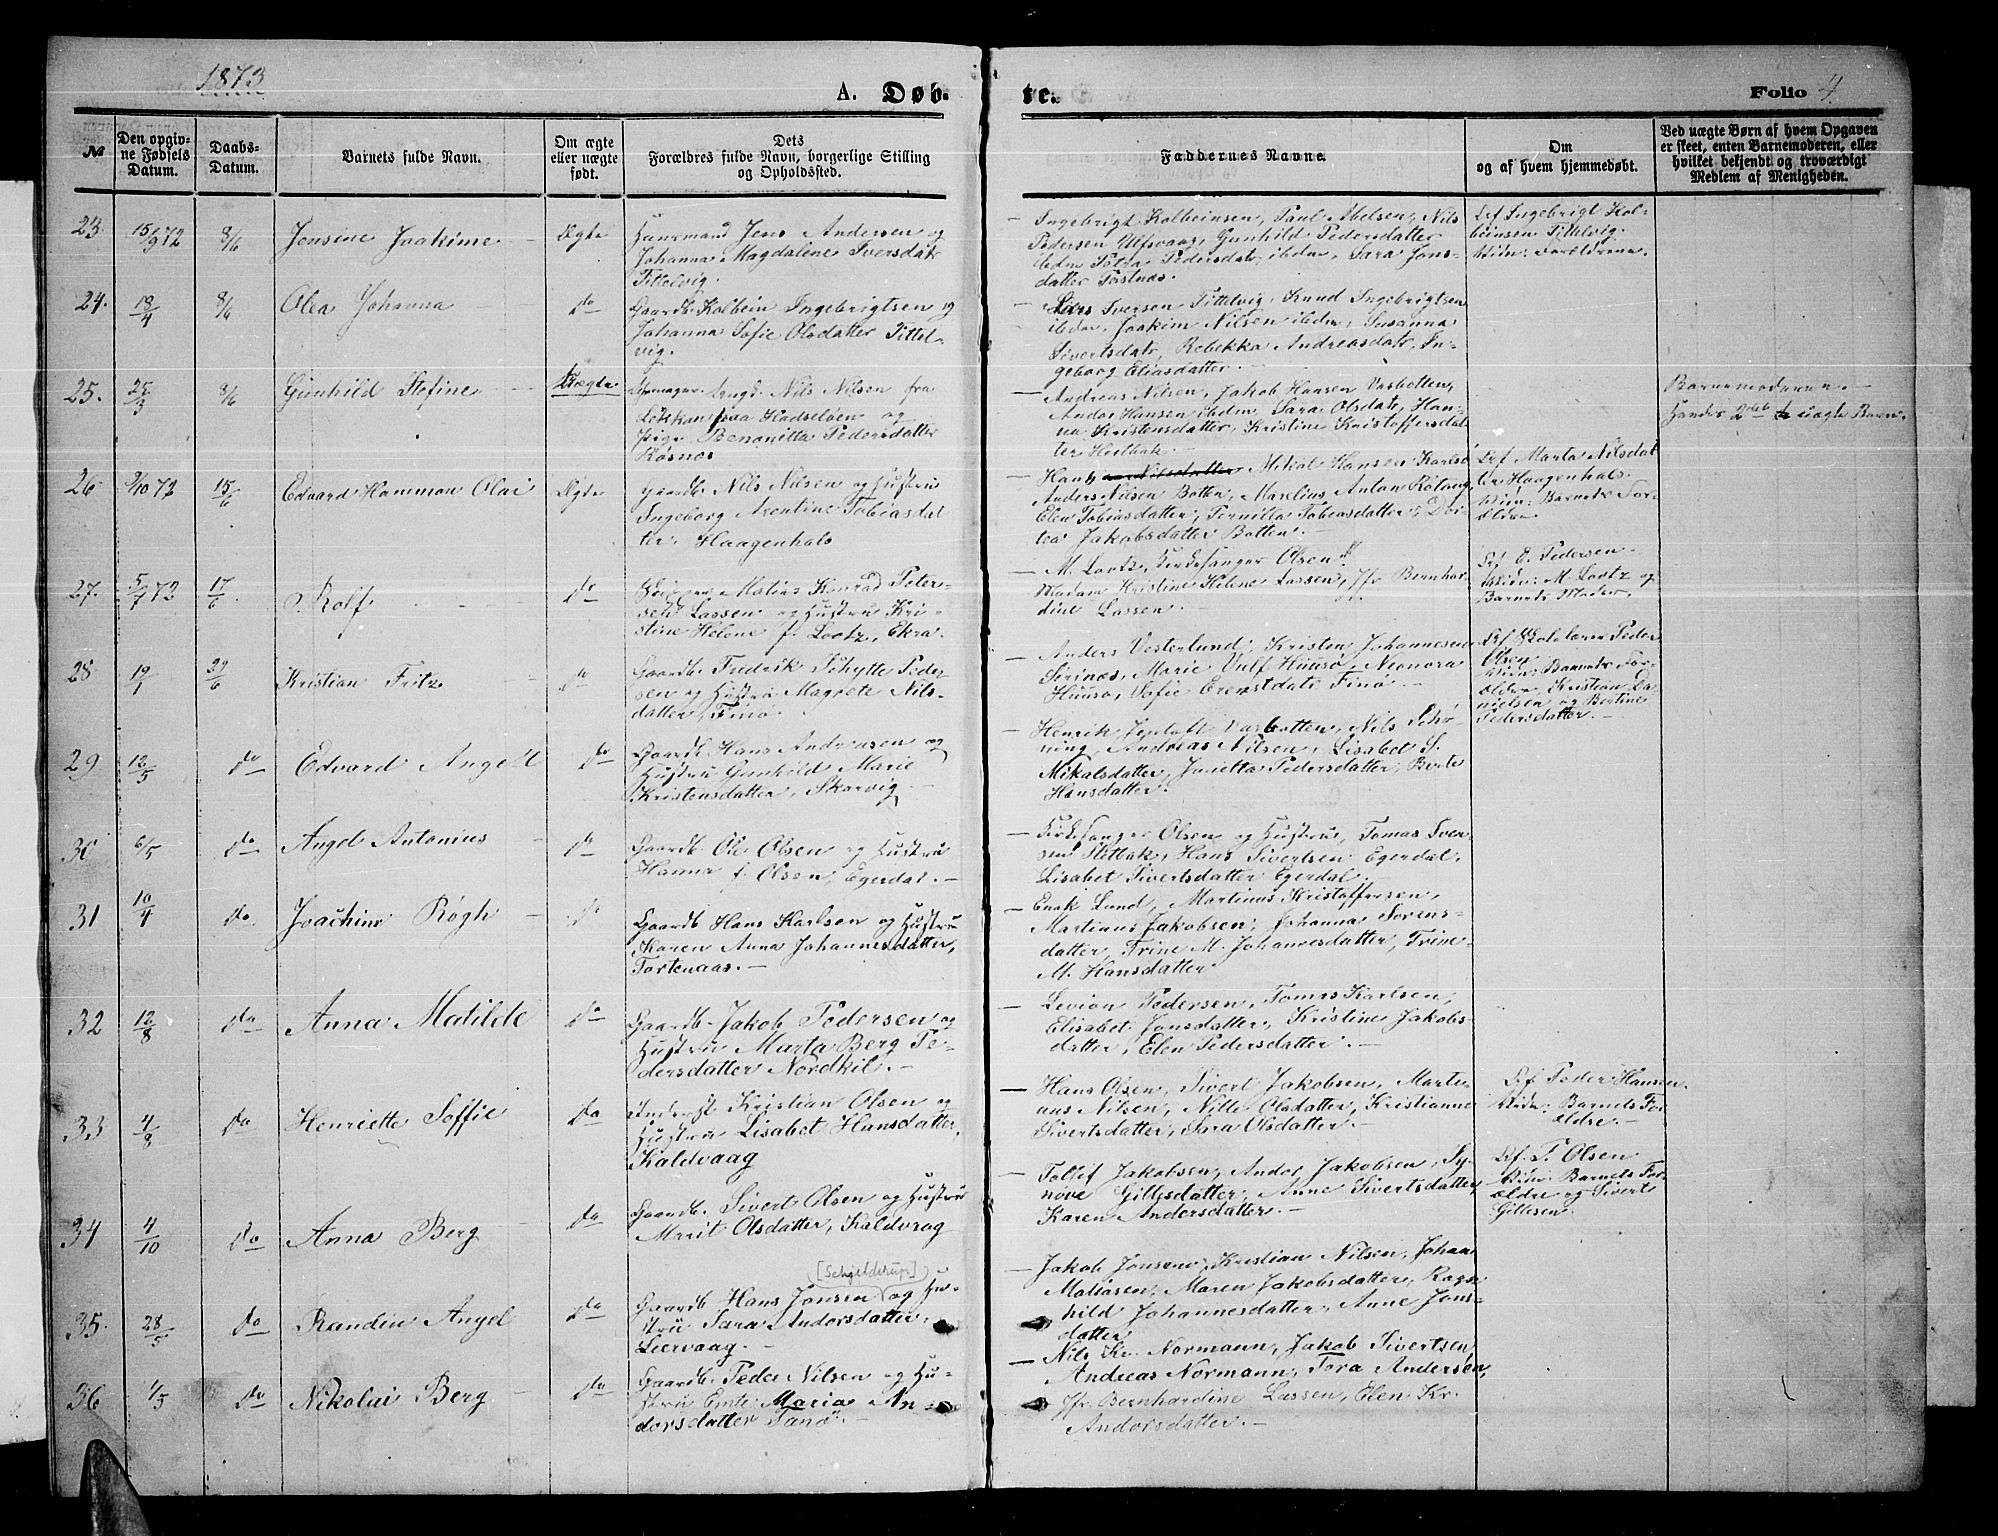 1873
A. Døb-
te.
Folio 4.
№
Den opgiv-
ne Fødsels
Datum.
Daabs-
Datum.
Barnets fulde Navn.
Om ægte
eller uægte
født.
Dets
Forældres fulde Navn, borgerlige Stilling
og Opholdssted.
Faddernes Navne.
Om
og af hvem hjemmedøbt.
Ved uægte Børn af hvem Opgaven
er skeet, enten Barnemoderen, eller
hvilket bekjendt og troværdigt
Medlem af Menigheden.
23.
15/9 72
8/6
Jensine Joakime
Ægte
Huusmand Jens Andersen og
Johanna Magdalene Iversdatr
Tittelvig
Ingebrigt Kolbeinsen, Paul Abelsen, Nils
Pedersen Ulfsvaag, Gunhild Pedersdatter
ibdm Petra Pedersdatr, ibdm, Sara Jons-
datter
Ingebrigt Kol-
beinsen Tittelvig.
Forældrene.
24.
18/4
8/6
Olea Johanna
do
Gaardb. Kolbein Ingebrigtsen og
Johanna Sofie Olsdatter Tittel-
vig.
Iversen Tittelvig, Knud Ingebrigtsen
ibdm, Joakim Nilsen ibdm, Susanna
Sivertsdatr, Rebekka Andreasdatr, In-
geborg Eliasdatter.
25.
25/3
8/6
Gunhild Stefine
Uægte
Nils Nilsen fra
paa Hadseløen og
Pige Benanitta Pedersdatter
Røsnæs
Andreas Nilsen, Jakob Hansen Vasbotten,
Andor Hansen ibdm, Sara Olsdatr, Han-
na Kristensdatter, Kristine Kristoffersdat-
ter
Barnemoderen.
Hendes 2det uægte Barn.
26
9/10 72
15/6
Edvard Hammon Olai
Ægte
Gaardb. Nils Nilsen og Hustru
Ingeborg Arentine Tobiasdat
ter. Haagenhals
Mikal Hansen Karlsø
Anders Nilsen Botten, Marelius Anton
Elen Tobiasdatter, Pernilla Tobiasdatter, Dor-
tea Jakobsdatter Botten.
Marta Nilsdat
ter Haagenhals.
Vidn: Barnets For-
ældre.
27.
5/7 72
17/6
Rolf
do
Matias Konrad Peter-
sen Lassen og Hustru Kri-
stine Helene f. Lootz, Ekra.
M. Lootz, Kirkesanger Olsen
Madam Kristine Helene Lassen, Jfr Bernhar
dine Lassen
E. Pedersen
Vidn: M. Lootz og
Barnets Moder.
28
19/1
22/6
Kristian Fritz
do
Gaardb. Fredrik Schytte Peder-
sen og Hustru Magrete Nils-
datter, Finø
Anders Vesterlund, Kristen Johannesen
Marie Vulf Huusø, Neonora
Huusø, Sofie Ernstdatr Finø
Skolelærer Peder
Olsen
Vidn: Barnets For-
ældre, Kristian Da-
nielsen og Bertine
Pedersdatter.
29
12/5
do
Edvard Angell
do
Gaardb. Hans Andreasen og
Hustru Gunhild Marie
Kristensdatter, Skarvig
Henrik Vasbotten, Nils Schø-
ning, Andreas Nilsen, Lisabet S.
Mikalsdatter, Jonetta Pedersdatter, Berte
Hansdatter.
30
6/5
do
Angel Antonius
do
Gaardb Ole Olsen og Hustru
Hanna f. Olsen, Egerdal.
Kirkesanger Olsen og Hustru, Tomas Iver
sen Stilbak, Hans Sivertsen Egerdal,
Lisabet Sivertsdatter Egerdal.
31
10/4
do.
Joachim Røgh
do
Gaardb Hans Karlsen og Hustru
Karen Anna Johannesdatter,
Tortenaas.
Enok Lund, Martinus Kristoffersen
Martinus Jakobsen, Johanna Sørens-
datter, Trine M. Johannesdatter, Trine
M. Hansdatter
32
12/8
do
Anna Matilde
do
Gaardb. Jakob Pedersen og
Hustru Marta Berg Pe-
dersdatter Nordkil.
Levion Pedersen, Tomas Karlsen,
Elisabet Jonsdatter, Kristine Jakobs-
datter, Elen Pedersdatter.
33
4/8
do
Henriette Soffie
do
Inderst Kristian Olsen og
Hustru Lisabet Hansdatter,
Kaldvaag
Hans Olsen, Sivert Jakobsen, Marti-
nus Nilsen, Nille Olsdatter, Kristianne
Sivertsdatter, Sara Olsdatter.
Peder Hansen.
Vidn: Barnets For
ældre.
34
4/10
do
Anna Berg
do
Gaardb. Sivert Olsen og Hustru
Marit Olsdatter, Kaldvaag
Tollef Jakobsen, Andor Jakobsen, Sy-
nøve Gillesdatter, Anne Sivertsdatter,
Karen Andersdatter.
P. Olsen
Vidn: Barnets For
ældre og Sivert
Gillesen.
35.
28/5
do
Randin Angel
do
[Schjelderup]
Gaardb Hans Jonsen og Hu-
stru Sara Andorsdatter,
Leervaag.
Jakob Jonsen, Kristian Nilsen, Johan
Matiasen, Maren Jakobsdatter, Ragn-
hild Johannesdatter, Anne Jons-
datter
36
1/5
do
Nikolai Berg
do
Gaardb. Peder Nilsen og Hu-
stru Emte Maria An-
dorsdatter Tanø.
Nils Kr. Normann, Jakob Sivertsen
Andreas Normann, Tora Andersen,
Jfr Bernhardine Lassen, Elen Kr.
Andorsdatter.